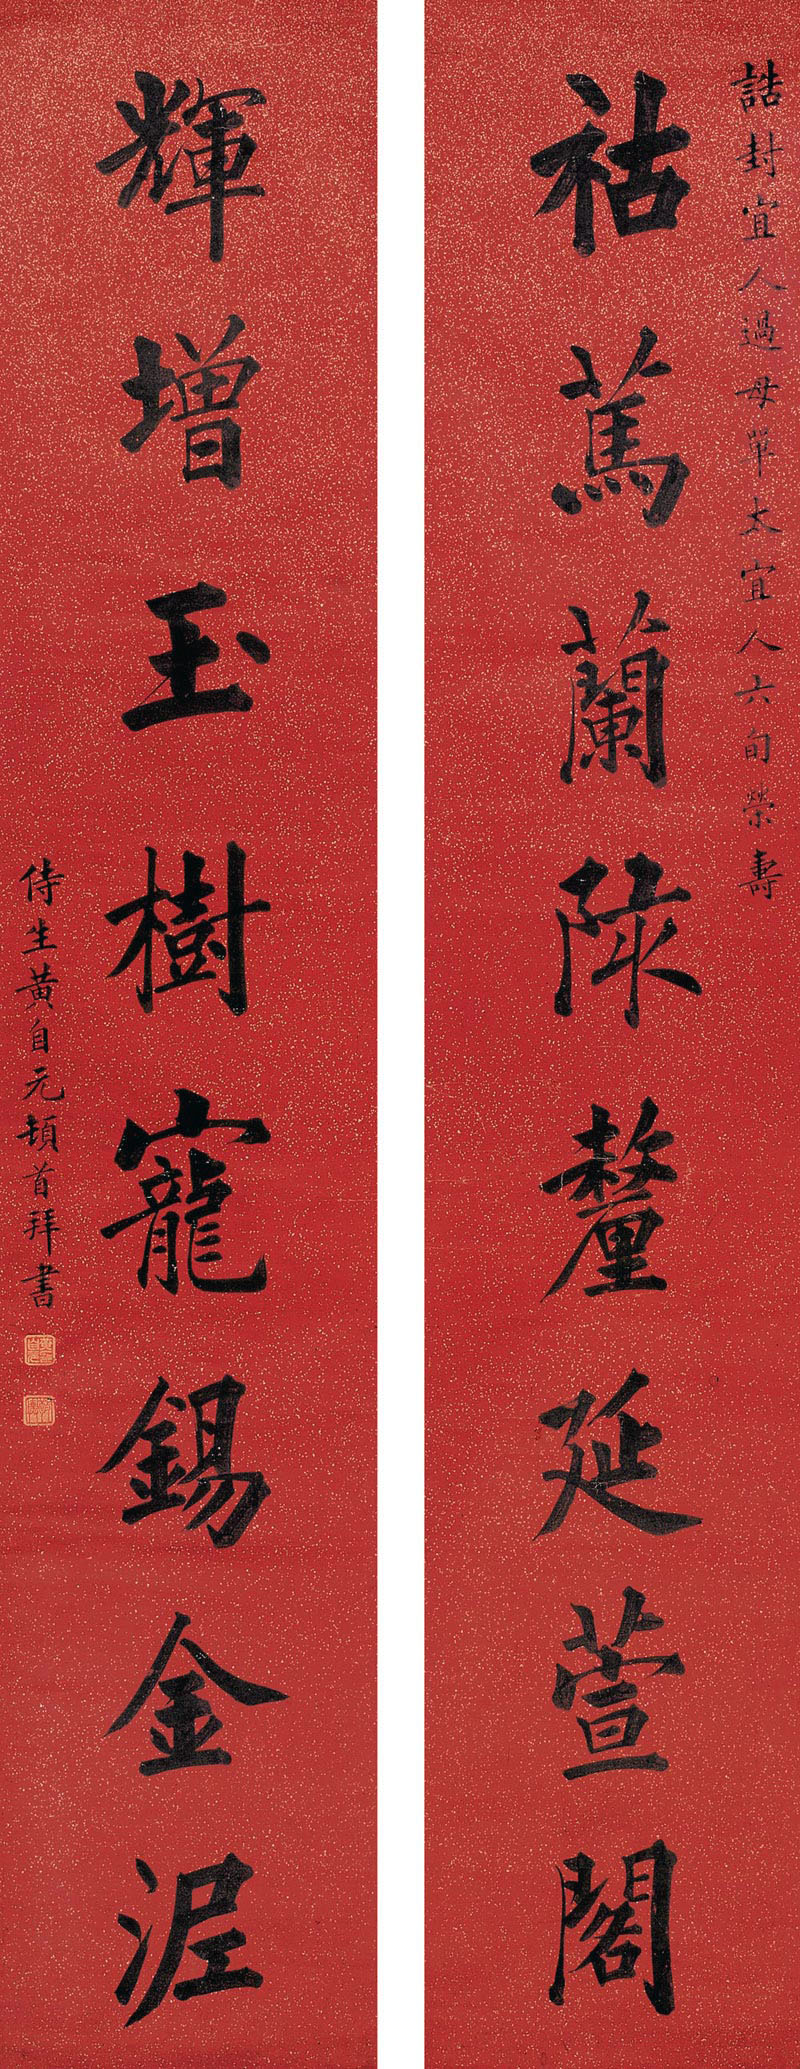 誥封宜人過母單太宜人六旬榮壽
祜篤蘭陔釐延萱閣
輝增玉樹寵錫金泥
侍生黃自元頓首拜書